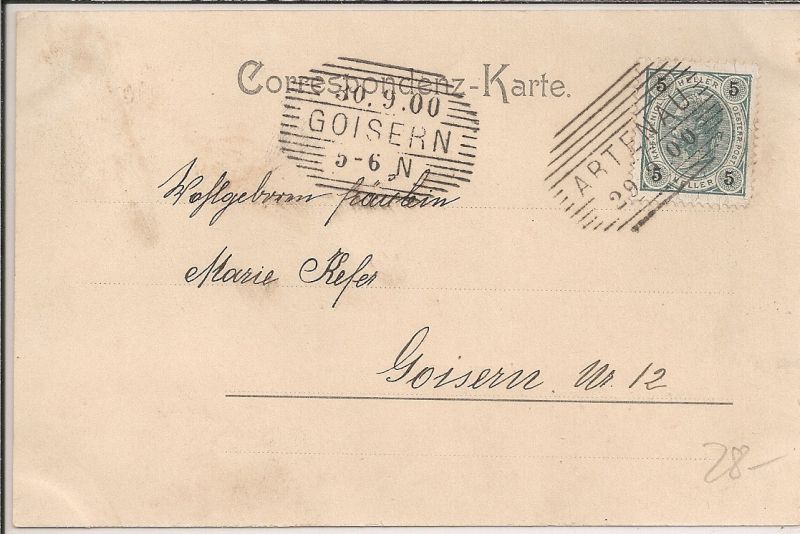 Correspondenz-Karte.
30.9.00
GOISERN
5-6 N
ARTENAU
29 00
5 HELLER 5
5 HELLER 5
Wohlgeboren Fräulein
Marie Kefer
Goisern Nr 12
28-